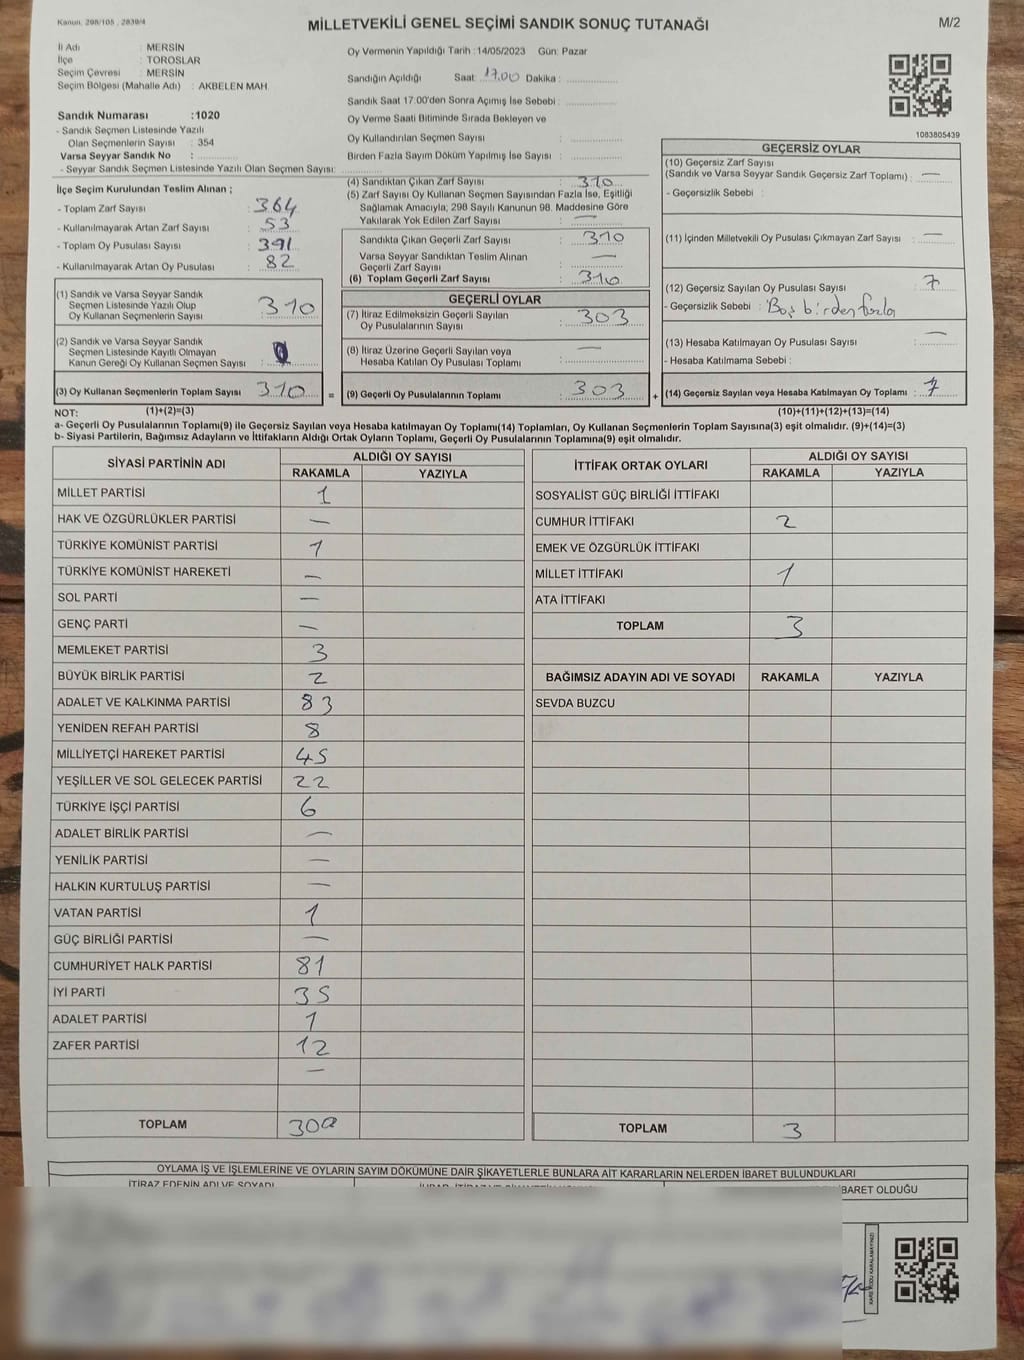 Kanun. 298/105 , 2839/4
MİLLETVEKİLİ GENEL SEÇİMİ SANDIK SONUÇ TUTANAĞI
M/2
İl Adı : MERSİN
İlçe : TOROSLAR
Seçim Çevresi : MERSİN
Seçim Bölgesi (Mahalle Adı) : AKBELEN MAH.
Oy Vermenin Yapıldığı Tarih : 14/05/2023 Gün: Pazar
Sandığın Açıldığı Saat: 17.00 Dakika :
Sandık Saat 17.00'den Sonra Açımış İse Sebebi :
Oy Verme Saati Bitiminde Sırada Bekleyen ve
Oy Kullandırılan Seçmen Sayısı :
Birden Fazla Sayım Döküm Yapılmış İse Sayısı :
1083805439
Sandık Numarası :1020
- Sandık Seçmen Listesinde Yazılı
Olan Seçmenlerin Sayısı : 354
Varsa Seyyar Sandık No :
- Seyyar Sandık Seçmen Listesinde Yazılı Olan Seçmen Sayısı:
İlçe Seçim Kurulundan Teslim Alınan ;
- Toplam Zarf Sayısı : 364
- Kullanılmayarak Artan Zarf Sayısı : 53
- Toplam Oy Pusulası Sayısı : 391
- Kullanılmayarak Artan Oy Pusulası : 82
(1) Sandık ve Varsa Seyyar Sandık
Seçmen Listesinde Yazılı Olup
Oy Kullanan Seçmenlerin Sayısı : 310
(2) Sandık ve Varsa Seyyar Sandık
Seçmen Listesinde Kayıtlı Olmayan
Kanun Gereği Oy Kullanan Seçmen Sayısı : 0
(3) Oy Kullanan Seçmenlerin Toplam Sayısı 310 =
(4) Sandıktan Çıkan Zarf Sayısı : 310
(5) Zarf Sayısı Oy Kullanan Seçmen Sayısından Fazla İse, Eşitliği
Sağlamak Amacıyla; 298 Sayılı Kanunun 98. Maddesine Göre
Yakılarak Yok Edilen Zarf Sayısı : —
Sandıkta Çıkan Geçerli Zarf Sayısı : 310
Varsa Seyyar Sandıktan Teslim Alınan —
Geçerli Zarf Sayısı :
(6) Toplam Geçerli Zarf Sayısı : 310
GEÇERLİ OYLAR
(7) İtiraz Edilmeksizin Geçerli Sayılan
Oy Pusulalarının Sayısı : 303
(8) İtiraz Üzerine Geçerli Sayılan veya
Hesaba Katılan Oy Pusulası Toplamı : —
(9) Geçerli Oy Pusulalarının Toplamı : 303 +
GEÇERSİZ OYLAR
(10) Geçersiz Zarf Sayısı
(Sandık ve Varsa Seyyar Sandık Geçersiz Zarf Toplamı) : —
- Geçersizlik Sebebi :
(11) İçinden Milletvekili Oy Pusulası Çıkmayan Zarf Sayısı : —
(12) Geçersiz Sayılan Oy Pusulası Sayısı : 7
- Geçersizlik Sebebi : Boş birden fazla
(13) Hesaba Katılmayan Oy Pusulası Sayısı : —
- Hesaba Katılmama Sebebi :
(14) Geçersiz Sayılan veya Hesaba Katılmayan Oy Toplamı : 7
NOT: (1)+(2)=(3)
(10)+(11)+(12)+(13)=(14)
a- Geçerli Oy Pusulalarının Toplamı(9) ile Geçersiz Sayılan veya Hesaba katılmayan Oy Toplamı(14) Toplamları, Oy Kullanan Seçmenlerin Toplam Sayısına(3) eşit olmalıdır. (9)+(14)=(3)
b- Siyasi Partilerin, Bağımsız Adayların ve İttifakların Aldığı Ortak Oyların Toplamı, Geçerli Oy Pusulalarının Toplamına(9) eşit olmalıdır.
SİYASİ PARTİNİN ADI ALDIĞI OY SAYISI
RAKAMLA YAZIYLA
MİLLET PARTİSİ 1
HAK VE ÖZGÜRLÜKLER PARTİSİ —
TÜRKİYE KOMÜNİST PARTİSİ 1
TÜRKİYE KOMÜNİST HAREKETİ —
SOL PARTİ —
GENÇ PARTİ —
MEMLEKET PARTİSİ 3
BÜYÜK BİRLİK PARTİSİ 2
ADALET VE KALKINMA PARTİSİ 83
YENİDEN REFAH PARTİSİ 8
MİLLİYETÇİ HAREKET PARTİSİ 45
YEŞİLLER VE SOL GELECEK PARTİSİ 22
TÜRKİYE İŞÇİ PARTİSİ 6
ADALET BİRLİK PARTİSİ —
YENİLİK PARTİSİ —
HALKIN KURTULUŞ PARTİSİ —
VATAN PARTİSİ 1
GÜÇ BİRLİĞİ PARTİSİ —
CUMHURİYET HALK PARTİSİ 81
İYİ PARTİ 35
ADALET PARTİSİ 1
ZAFER PARTİSİ 12
—
TOPLAM 300
İTTİFAK ORTAK OYLARI ALDIĞI OY SAYISI
RAKAMLA YAZIYLA
SOSYALİST GÜÇ BİRLİĞİ İTTİFAKI
CUMHUR İTTİFAKI 2
EMEK VE ÖZGÜRLÜK İTTİFAKI
MİLLET İTTİFAKI 1
ATA İTTİFAKI
TOPLAM 3
BAĞIMSIZ ADAYIN ADI VE SOYADI RAKAMLA YAZIYLA
SEVDA BUZCU
TOPLAM 3
OYLAMA İŞ VE İŞLEMLERİNE VE OYLARIN SAYIM DÖKÜMÜNE DAİR ŞİKAYETLERLE BUNLARA AİT KARARLARIN NELERDEN İBARET BULUNDUKLARI
İTİRAZ EDENİN ADI VE SOYADI
İBARET OLDUĞU
KARE KODU KARALAMAYINIZ!